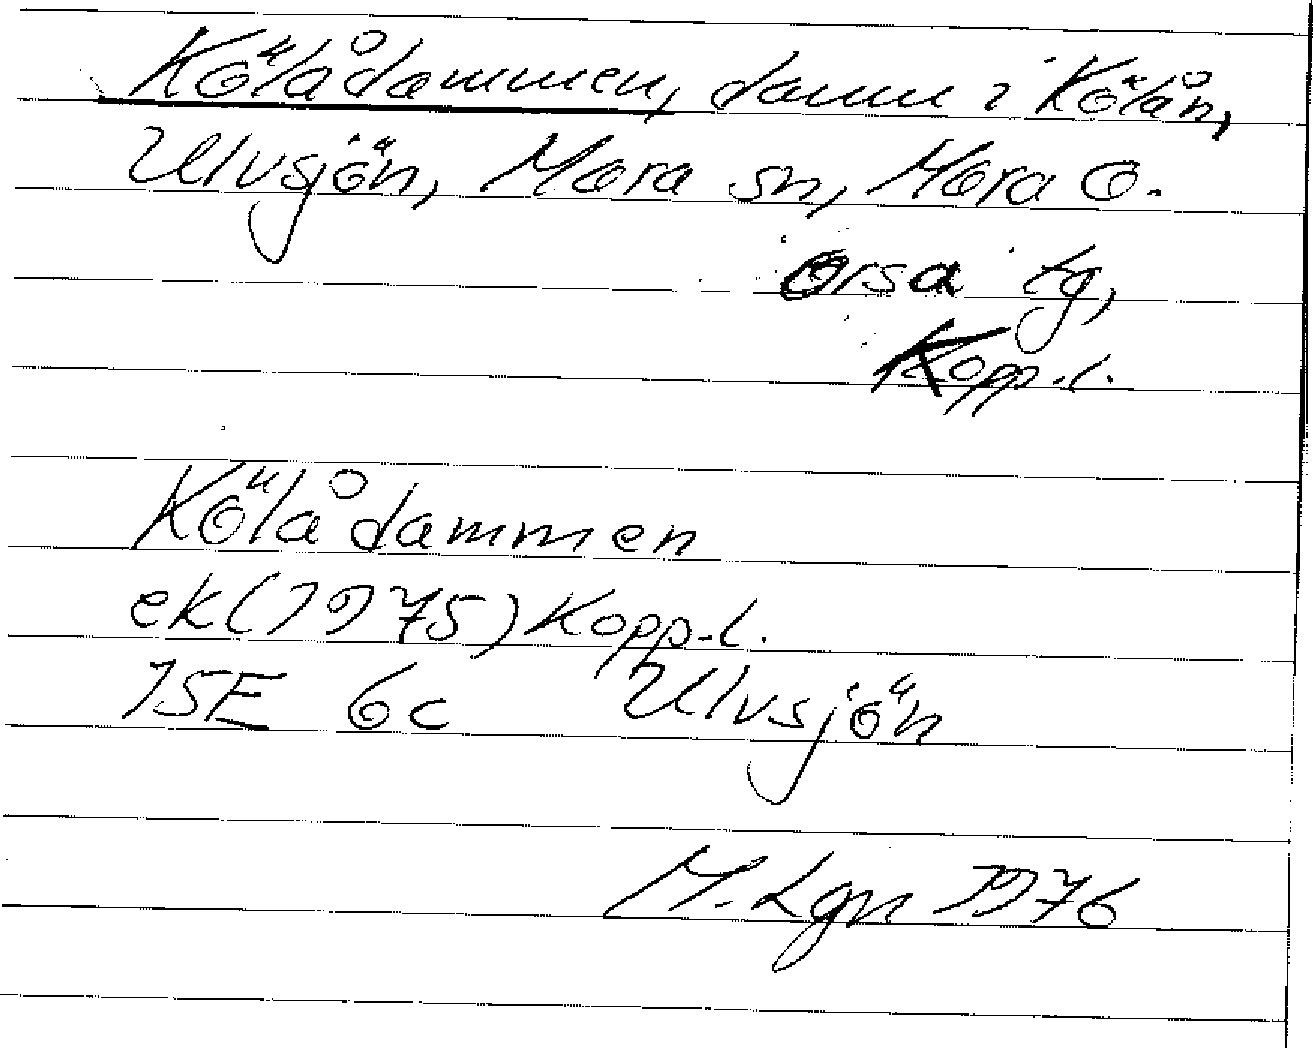 Kölådammen, damm i Kölån,
Ulvsjön, Mora sn, Mora o.
Orsa tg,
Kopp.l.
Kölådammen
ek(1975)Kopp.l.
15E 6c Ulvsjön
M.Lgn 1976